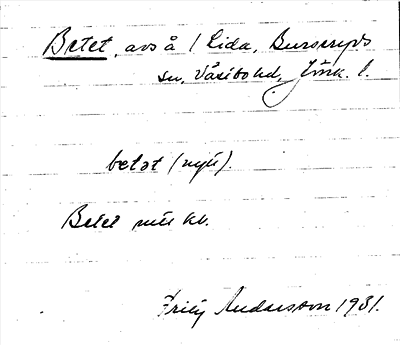 Betet, avs å / Lida, Burseryds
sn, Västbo hd, Jönk. l.
betət (nytt).
Betet nytt kv.
Frity Andersson 1931.